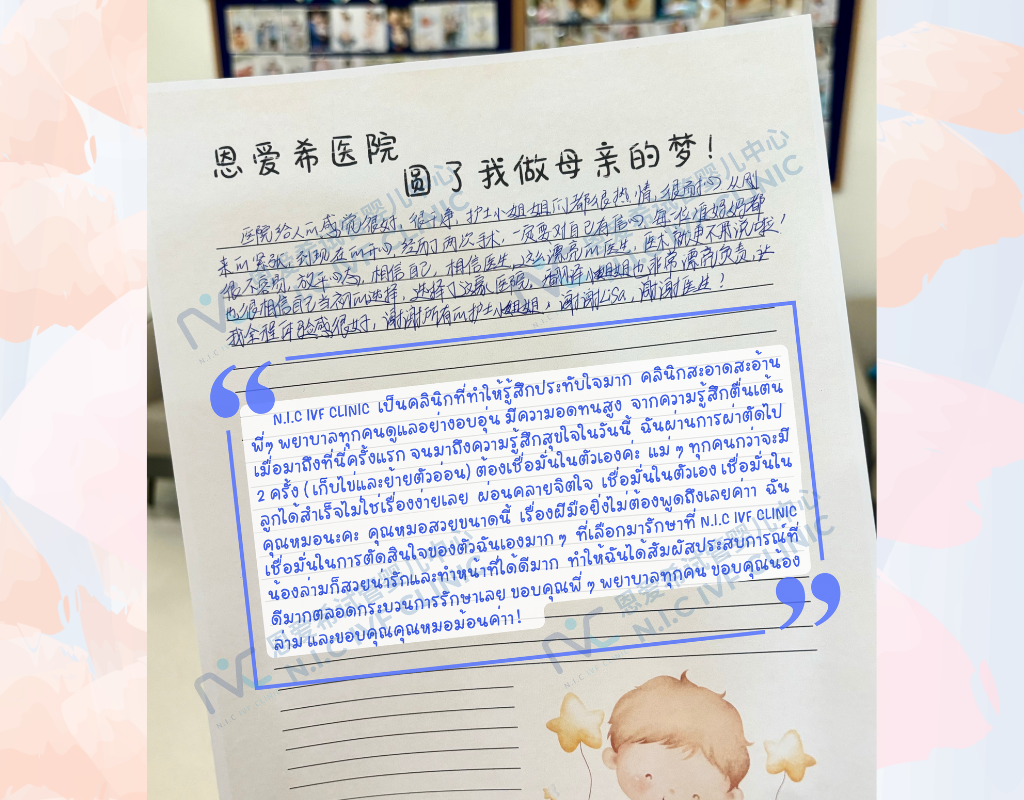 恩爱希医院
圆了我做母亲的梦!
医院给人的感觉很好,很干净,护士小姐姐们都很热情,很耐心从刚
来的紧张,到现在的开心,经历了两次手术,一定要对自己有信心,每一位准妈妈都
很不容易,放平心态,相信自己,相信医生,这么漂亮的医生,医术就更不用说啦!
也很相信自己当初的选择,选择了这家医院,翻译小姐姐也非常漂亮负责,让
我全程体验感很好,谢谢所有的护士小姐姐,谢谢Lisa,感谢医生!
N.I.C IVF CLINIC เป็นคลินิกที่ทำให้รู้สึกประทับใจมาก คลินิกสะอาดสะอ้าน
พี่ๆ พยาบาลทุกคนดูแลอย่างอบอุ่น มีความอดทนสูง จากความรู้สึกตื่นเต้น
เมื่อมาถึงที่นี่ครั้งแรก จนมาถึงความรู้สึกสุขใจในวันนี้ ฉันผ่านการผ่าตัดไป
2 ครั้ง (เก็บไข่และย้ายตัวอ่อน) ต้องเชื่อมั่นในตัวเองค่ะ แม่ ๆ ทุกคนกว่าจะมี
ลูกได้สำเร็จไม่ใช่เรื่องง่ายเลย ผ่อนคลายจิตใจ เชื่อมั่นในตัวเอง เชื่อมั่นใน
คุณหมอนะคะ คุณหมอสวยขนาดนี้ เรื่องฝีมือยิ่งไม่ต้องพูดถึงเลยค่าา ฉัน
เชื่อมั่นในการตัดสินใจของตัวฉันเองมาก ๆ ที่เลือกมารักษาที่ N.I.C IVF CLINIC
น้องล่ามก็สวยน่ารักและทำหน้าที่ได้ดีมาก ทำให้ฉันได้สัมผัสประสบการณ์ที่
ดีมากตลอดกระบวนการรักษาเลย ขอบคุณพี่ ๆ พยาบาลทุกคน ขอบคุณน้อง
ล่าม และขอบคุณคุณหมอม้อนค่าา!
恩爱希试管婴儿中心
N.I.C IVF CLINIC